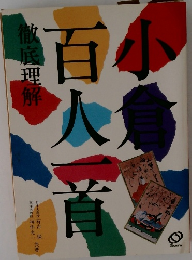 小倉
百人一首
徹底理解